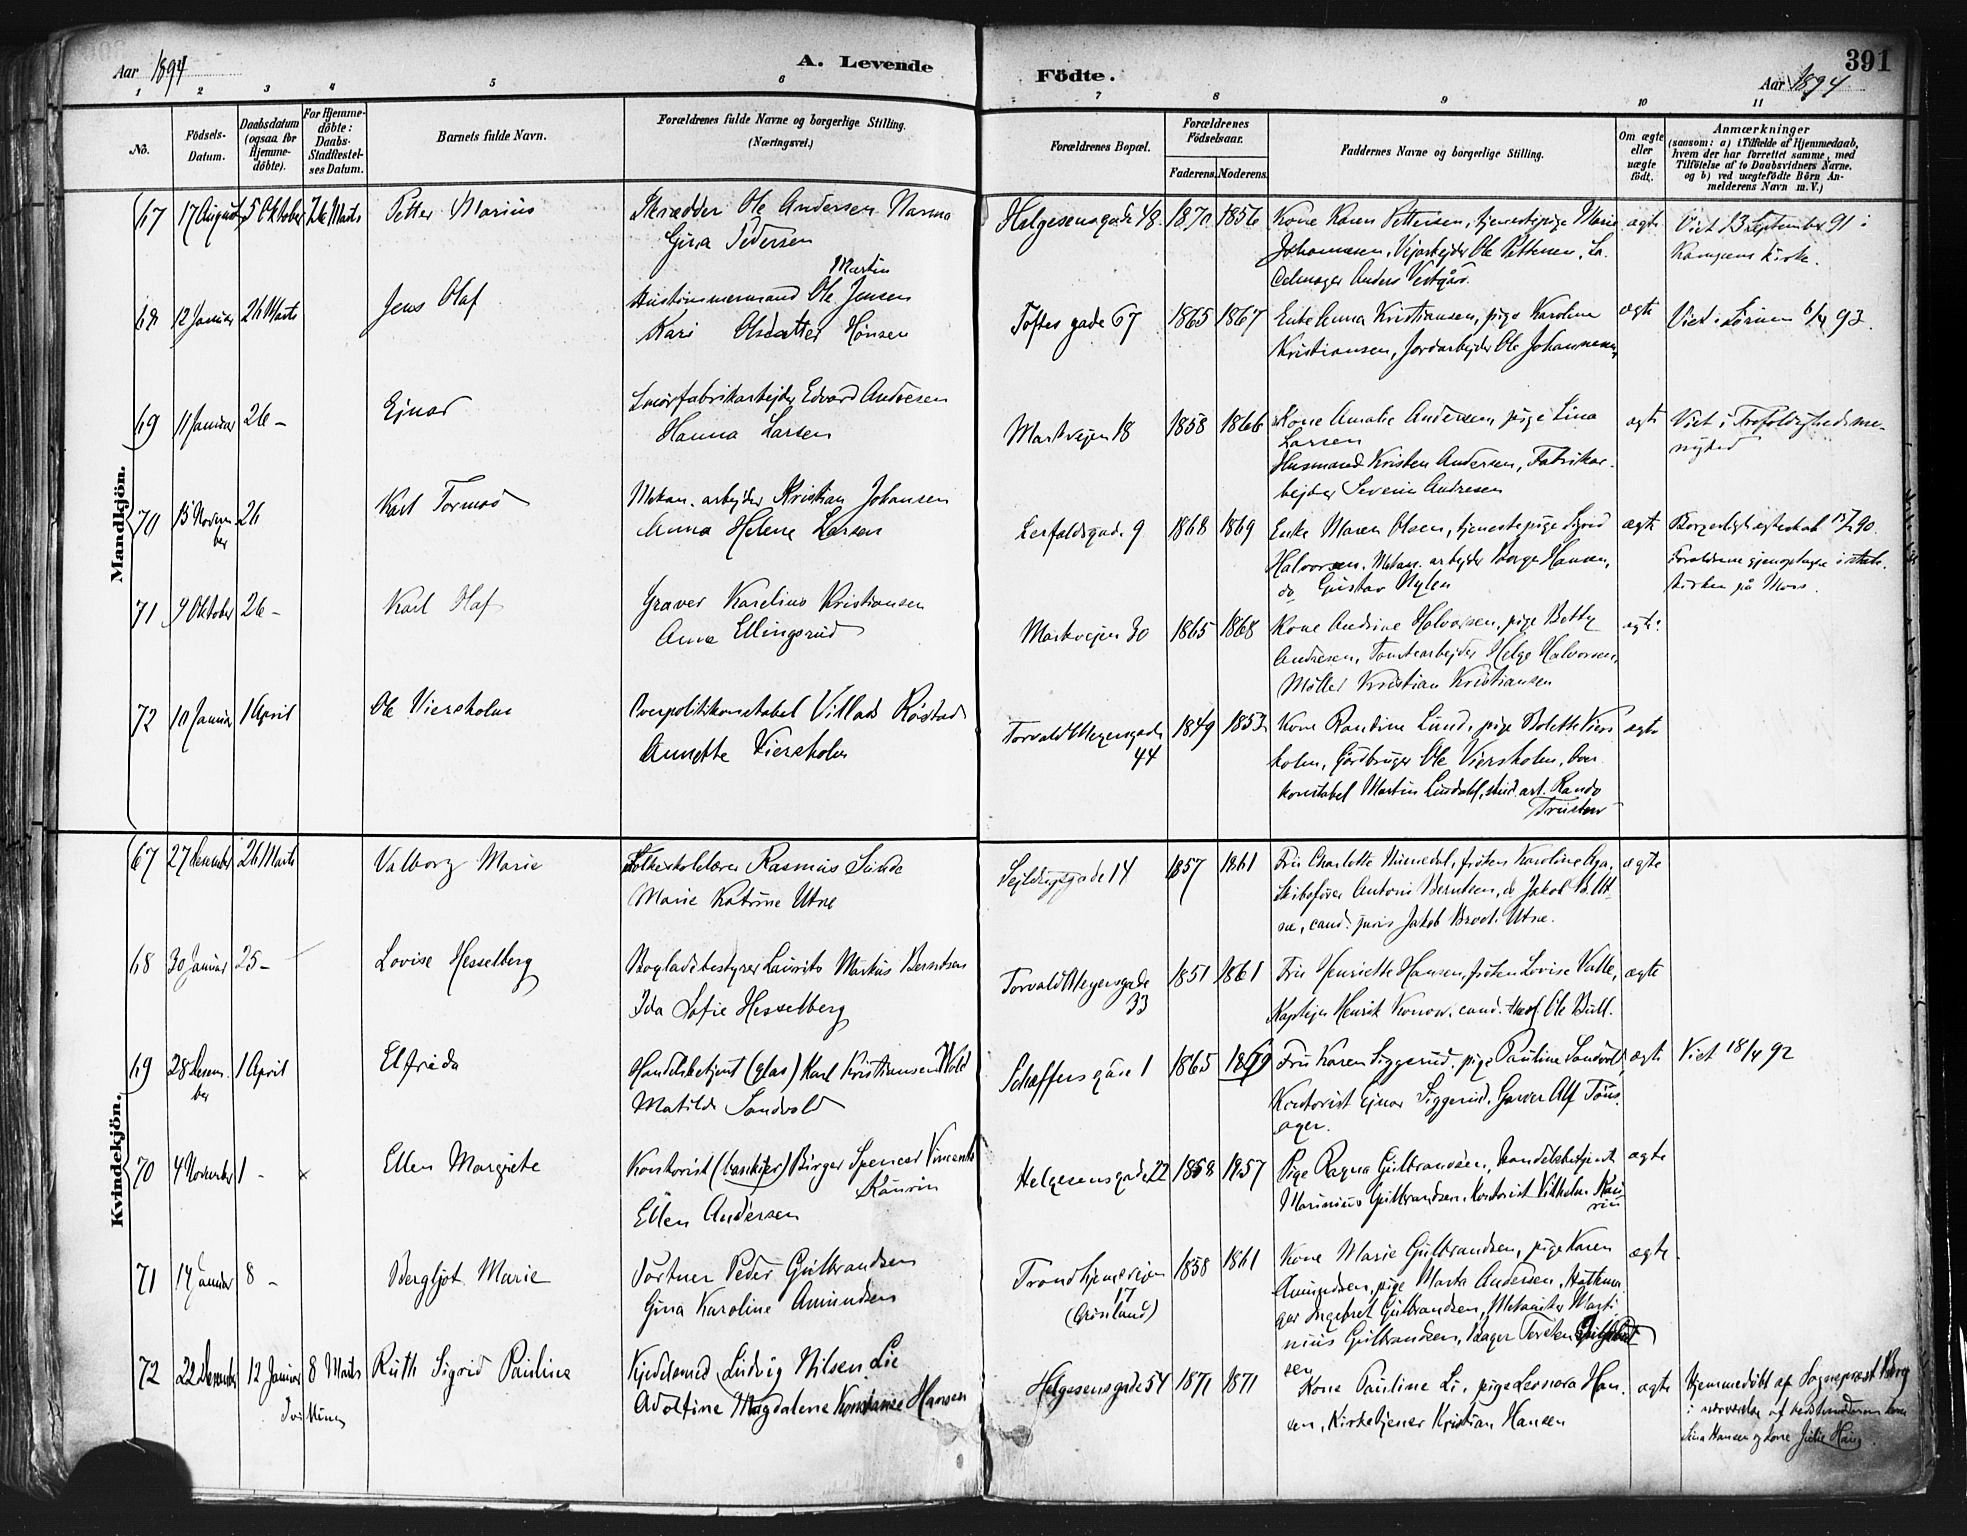 Aar 1894
A. Levende
Födte.
391
Aar 1894
1 2 3 4 5 6 7 8 9 10 11
No.
Födsels-
Datum.
Daabsdatum
(ogsaa for
Hjemme-
döbte).
For Hjemme-
döbte:
Daabs-
Stadfæstel-
ses Datum.
Barnets fulde Navn.
Forældrenes fulde Navne og borgerlige Stilling.
(Næringsvei.)
Forældrenes Bopæl.
Forældrenes
Födselsaar.
Faderens. Moderens.
Faddernes Navne og borgerlige Stilling.
Om ægte
eller
uægte
födt.
Anmærkninger
(saasom: a) i Tilfælde af Hjemmedaab,
hvem der har forrettet samme, med
Tilföielse af to Daabsvidners Navne.
og b) ved uægtefödte Börn An-
melderens Navn m. V.)
Mandkjön.
67 17 August 5 Oktober Marts Petter Marius
Skrædder Ole Andersen
Gina Pedersen
Helgesensgade 48 1870 1856
Kone Karen Pettersen, tjenestepige Marie
Johannesen, Vejarbejder Ole Pettersen,
Anders Vestgård
ægte
Viet 13 September 91 i
Kampens kirke.
68 12 Januar 26 Marts Jens Olaf
Martin
Hustømmermand Ole Jensen
Kari Olsdatter Hønsen
Toftes gade 67 1865 1867
Enke Anna Kristiansen, pige Karoline
Kristiansen, Jordarbejder Ole Johannesen
ægte
69 11 Januar 26 – Ejnar
Edvard Andresen
Hanna Larsen
Markvejen 18 1858 1866
Kone Amalie Andersen, pige Lina
Larsen
Husmand Kristen Andersen, Fabrikar-
bejder Severin Andresen
ægte
Viet i Trefoldighedsme-
nighed
70 13 Novem
ber
26
Karl
Mekan. arbejder Kristian Johansen
Anna Helene Larsen
9 1868 1869
Enke Maren Olsen, tjenestepige
Halvorsen, Mekan. arbejder Børge Hansen,
do Gustav Nylen
ægte
Borgerligt ægteskab 90.
Forældrene gjenoptagne i stats
kirken på Moss.
71 9 Oktober 26 – Karl Olaf
Graver Karelius Kristiansen
Anna Ellingsrud
Markvejen 30 1865 1868
Kone Andrine Halvorsen, pige Betty
Andresen, Tomtearbejder Helge Halvorsen,
Møller Kristian Kristiansen
ægte
72 10 Januar 1 April Ole Viersholm
Overpolitikonstabel Villads Røstad
Annette Viersholm
Torvald Meyersgade
44
1849 1853
Kone Randine Lund, pige Bolette Viers
holm, Gårdbruger Ole Viersholm, Over
konstabel Martin Lindahl, stud. art. Rando
ægte
Kvindekjön.
67 27 December 26 Marts Valborg Marie
Folkeskolelærer Rasmus Sunde
Marie Katrine Utne
Sejldugsgade 14 1857 1861
Fru Charlotte frøken Karoline Aga,
Skibsfører Antoni Berntsen, do Jakob B. Ut-
ne, cand. juris Jakob Utne.
ægte
68 30 Januar 25 – Lovise Hesselberg
Bogladebestyrer Laurits Markus Berntsen
Ida Sofie Hesselberg
Torvald Meyersgade
33
1851 1861
Fru Henriette Hansen, frøken Lovise Valle,
Kaptejn Henrik Konow, cand. theol. Ole Bull.
ægte
69 28 Decem
ber
1 April Elfrida
Handelsbetjent (glas) Karl Kristiansen Wold
Matilde Sandvold
Schæffersgade 1 1865 1869
Fru Karen Siggerud, pige Pauline Sandvold,
Kontorist Ejnar Siggerud, Garver Alf Tøns-
ager.
ægte
Viet 18/4 92
70 4 November 1 – × Ellen Margrete
Kontorist (bankier) Birger Spencer Vincents
Kaurin
Ellen Andersen
Helgesensgade 22 1858 1857
Pige Ragna Gulbrandsen, Handelsbetjent
Marinius Gulbrandsen, Kontorist Vilhelm Kau-
rin
ægte
71 14 Januar 8 – Bergljot Marie
Portner Peder Gulbrandsen
Gina Karoline Amundsen
Trondhjemsvejen
17
(Grønland)
1858 1861
Kone Marie Gulbrandsen, pige Karen
Amundsen, pige Marta Andersen, Hatma
ger Ingebret Gulbrandsen, Mekaniker Marti
nius Gulbrandsen, Bager Torsten
sen
ægte
72 22 December 12 Januar 8 Marts Ruth Sigrid Pauline
Kjedelsmed Ludvig Nilsen Lie
Adolfine Magdalene Konstanse Hansen
Helgesensgade 54 1871 1871
Kone Pauline Li, pige Leonora Han
sen, Kirketjener Kristian Hansen
ægte
Hjemmedøbt af Sogneprest Berg
i nærværelse af bedstmoderen kone
Lina Hansen og kone Julie Haug